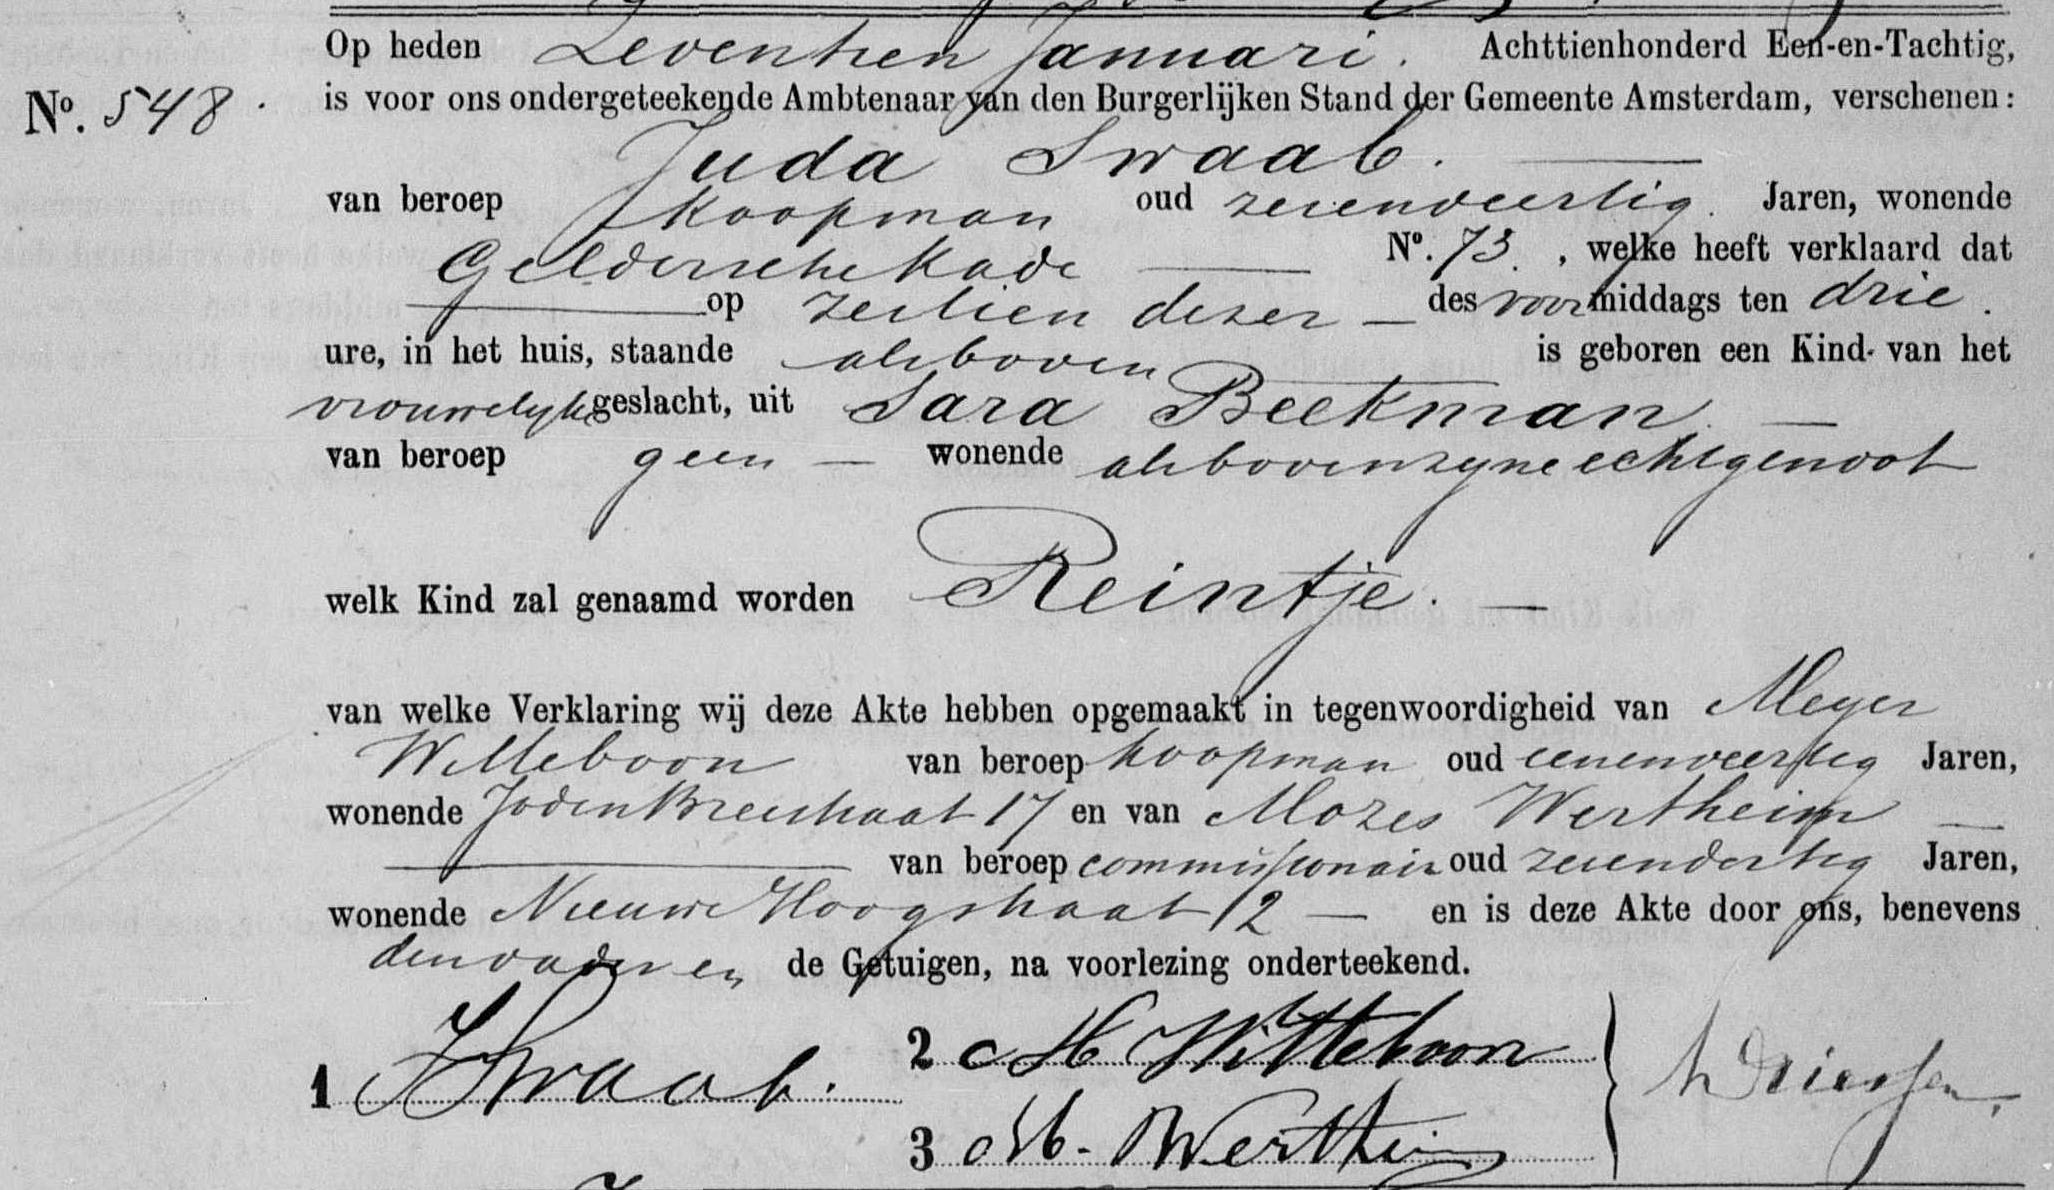 Op heden Zeventien Januari. Achttienhonderd Een-en-Tachtig,
No. 548. is voor ons ondergeteekende Ambtenaar van den Burgerlijken Stand der Gemeente Amsterdam, verschenen:
Juda Swaab.
van beroep Koopman oud zevenveertig. Jaren, wonende
Geldersche Kade No. 73., welke heeft verklaard dat
op zestien dezer des voormiddags ten drie.
ure, in het huis, staande alsboven is geboren een Kind van het
vrouwelyk geslacht, uit Sara Beekman.
van beroep geen wonende alsboven zyne echtgenoot
welk Kind zal genaamd worden Reintje.
van welke Verklaring wij deze Akte hebben opgemaakt in tegenwoordigheid van Meyer
Witteboon van beroep koopman oud eenenveertig Jaren,
wonende Jodenbreestraat 17 en van Mozes Wertheim
van beroep commissionair oud zevendertig Jaren,
wonende Nieuwe Hoogstraat 12 en is deze Akte door ons, benevens
den vader en de Getuigen, na voorlezing onderteekend.
1 J Swaab. 2 M Witteboon
3 M. Wertheim